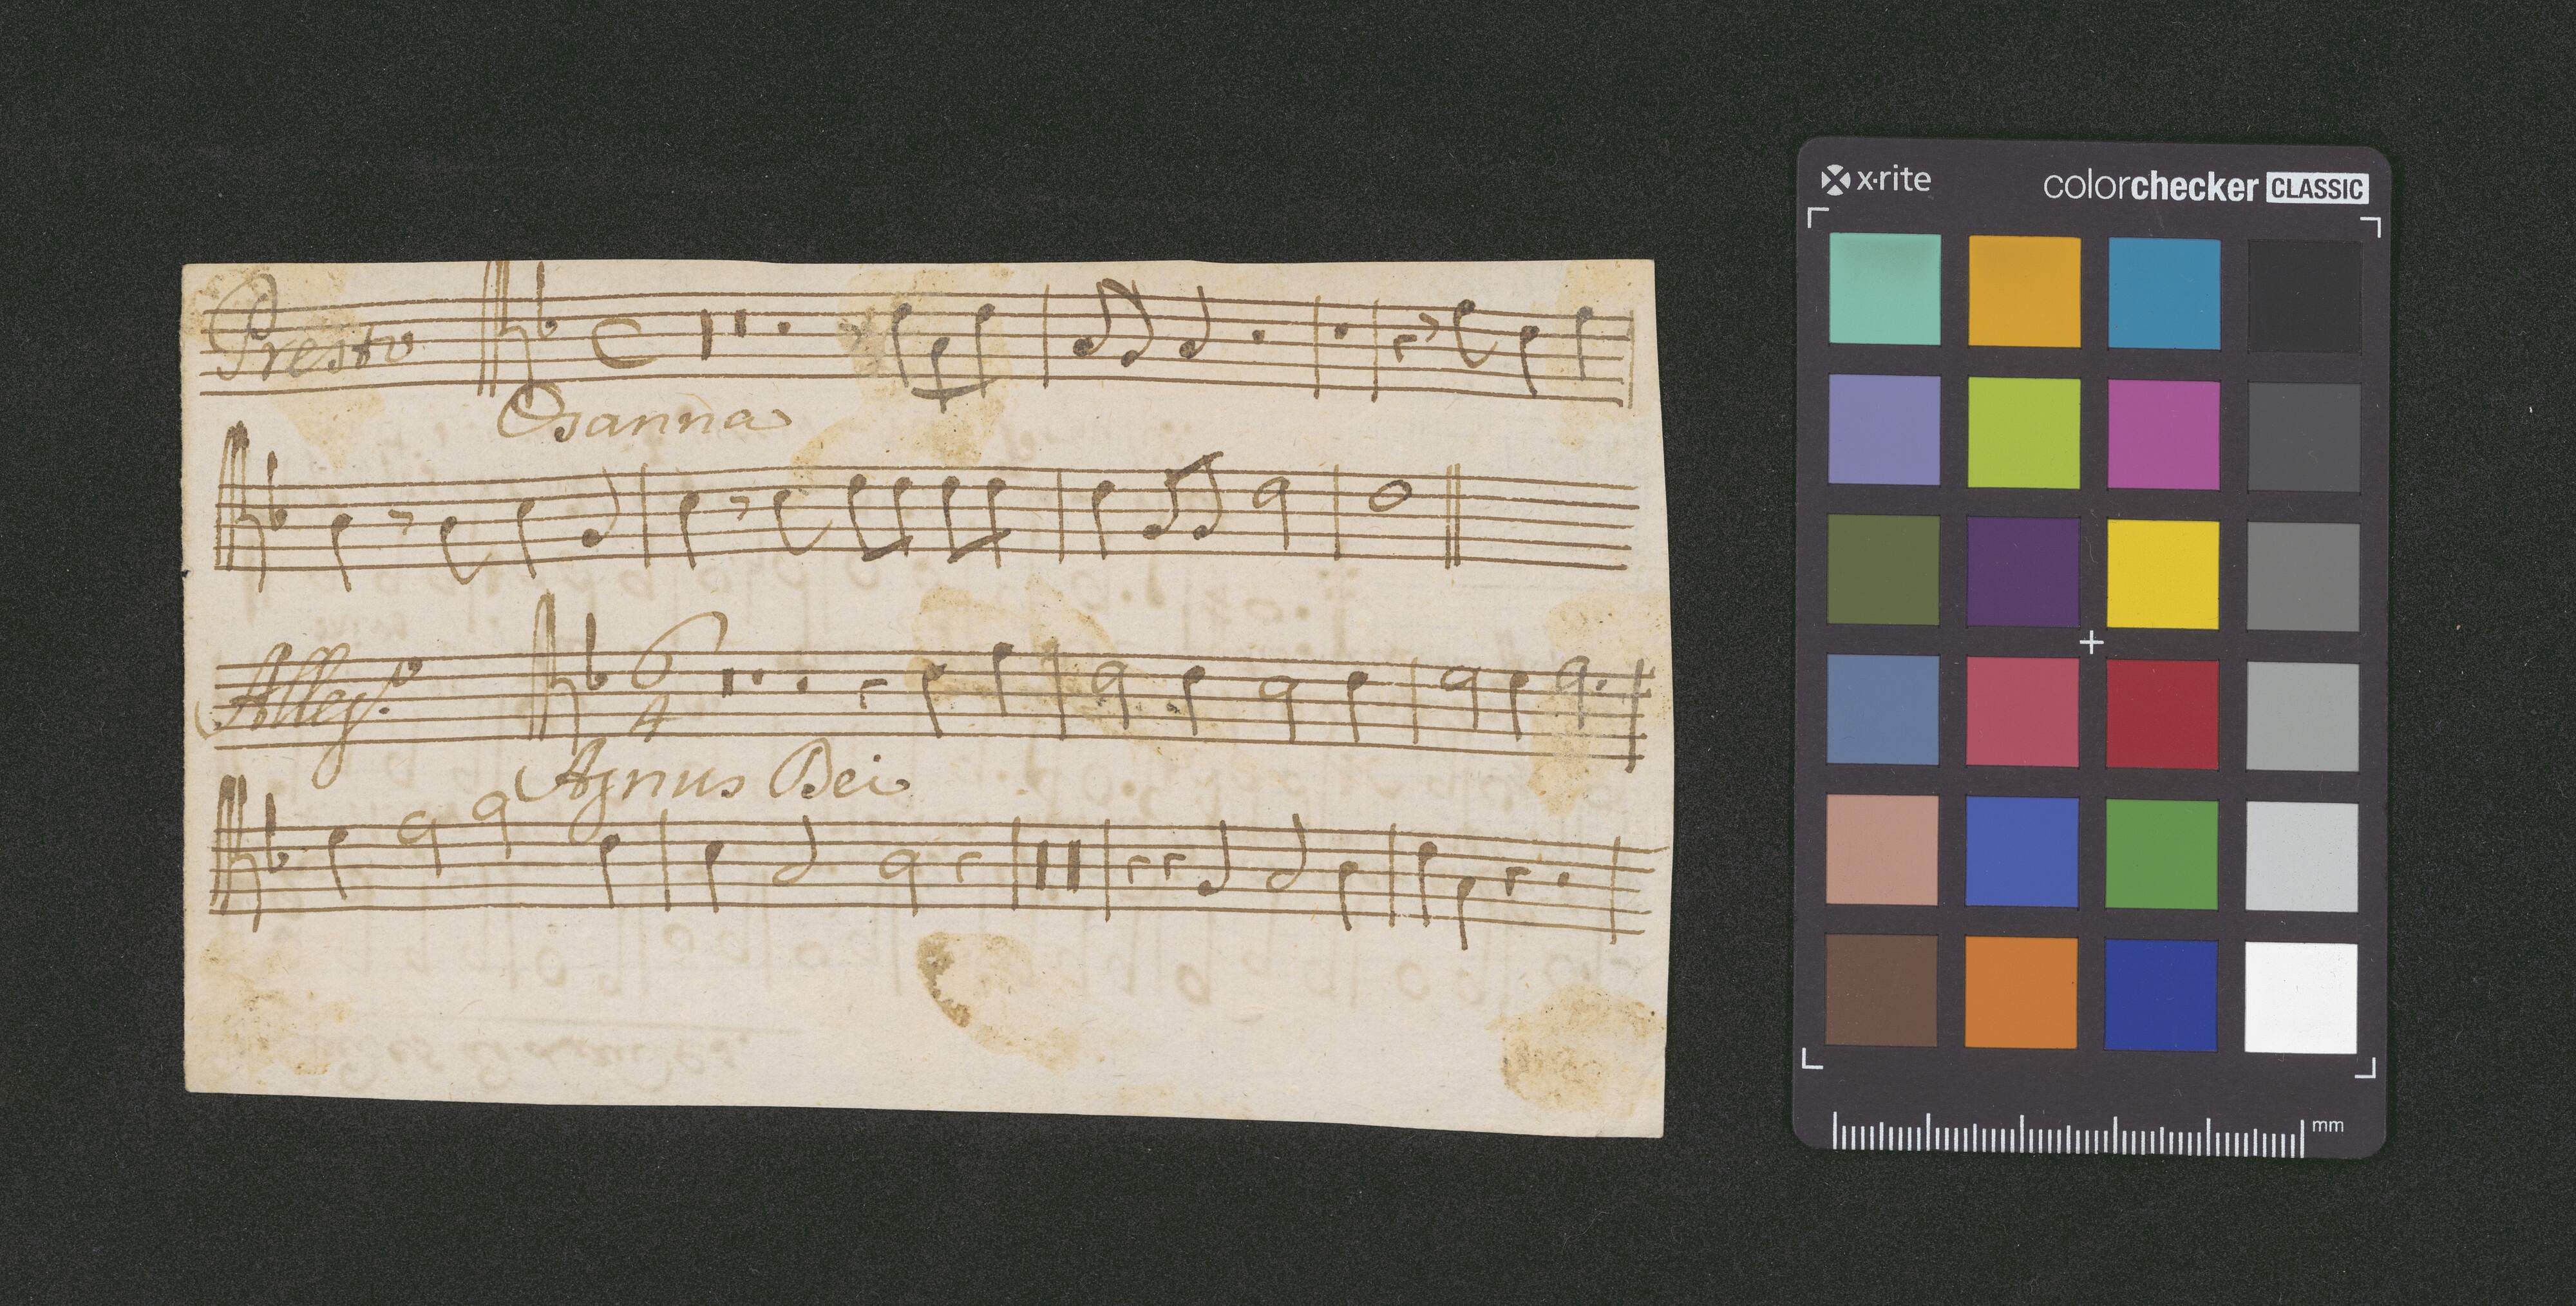 Presto
Osanna
Alleg.o
6
4
Agnus Dei
x·rite
colorchecker CLASSIC
mm